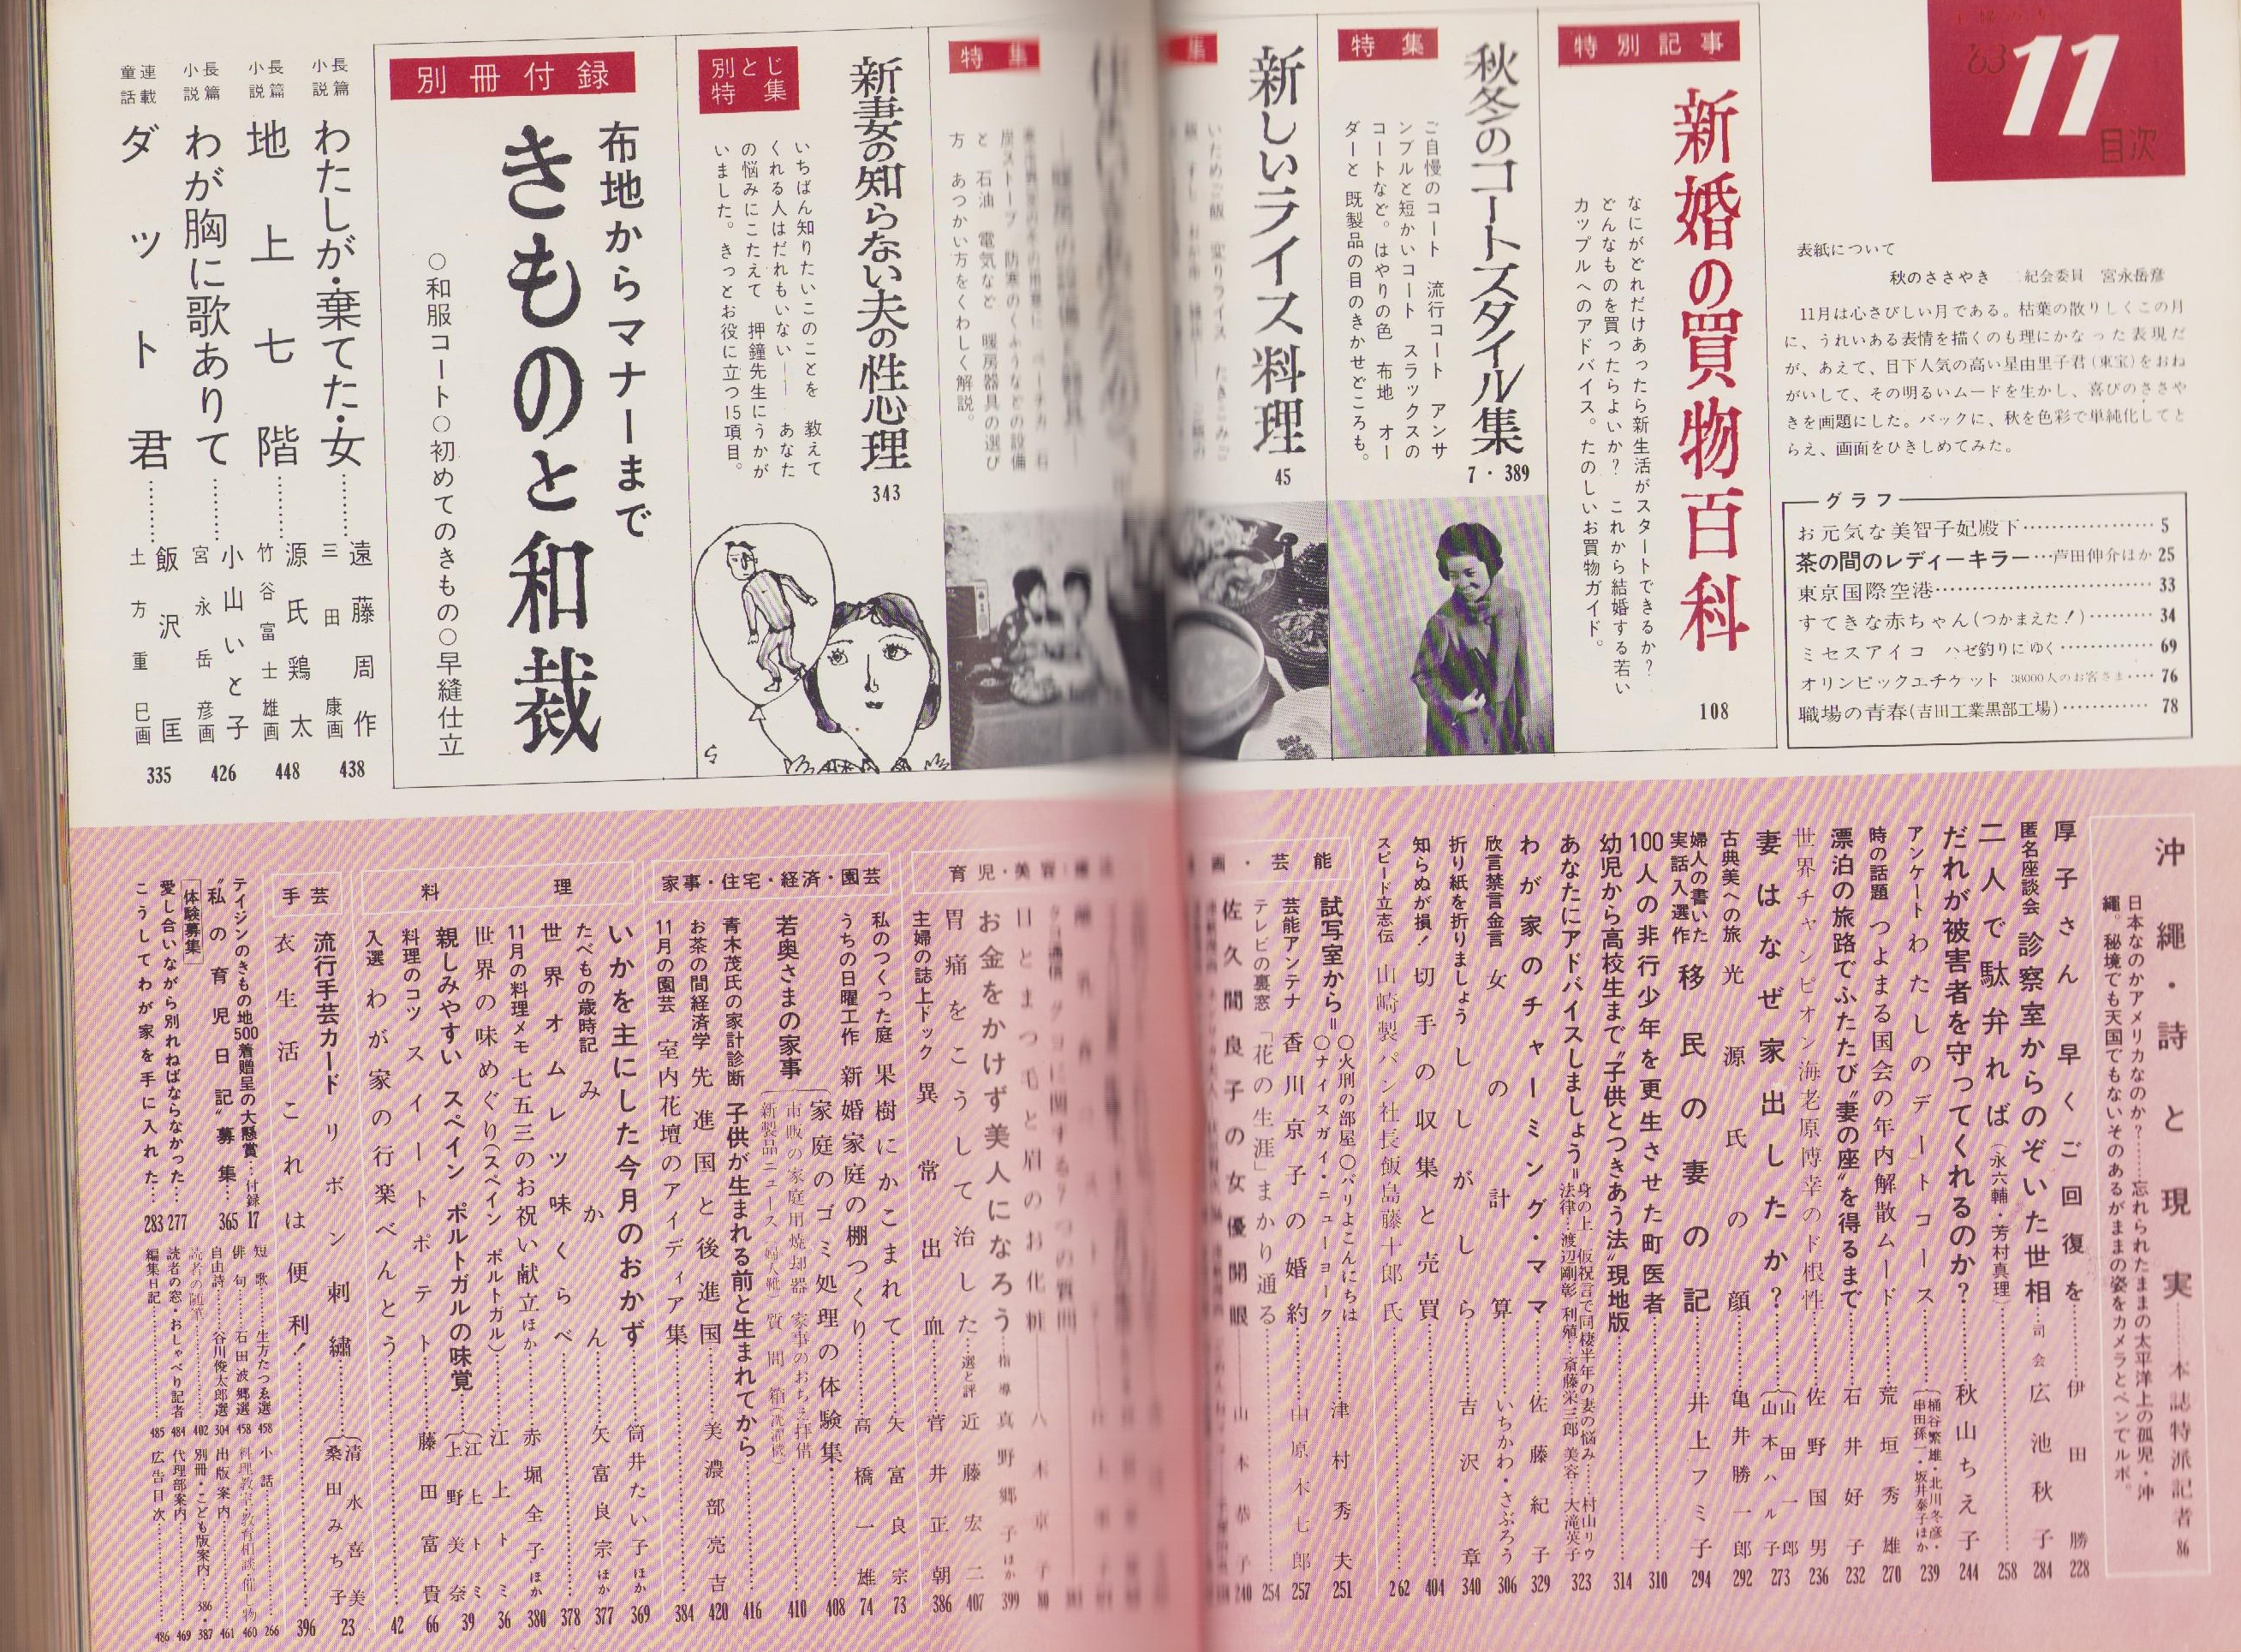 '63
11
目次
表紙について
秋のささやき　二紀会委員　宮永岳彦
11月は心さびしい月である。枯葉の散りしくこの月
に、うれいある表情を描くのも理にかなった表現だ
が、あえて、目下人気の高い星由里子君(東宝)をおね
がいして、その明るいムードを生かし、喜びのささや
きを画題にした。バックに、秋を色彩で単純化してと
らえ、画面をひきしめてみた。
グラフ
お元気な美智子妃殿下……5
茶の間のレディーキラー…芦田伸介ほか 25
東京国際空港……33
すてきな赤ちゃん(つかまえた!)……34
ミセスアイコ　ハゼ釣りにゆく……69
オリンピックエチケット　38000人のお客さま……76
職場の青春(吉田工業黒部工場)……78
特別記事
新婚の買物百科
なにがどれだけあったら新生活がスタートできるか?
どんなものを買ったらよいか?　これから結婚する若い
カップルへのアドバイス。たのしいお買物ガイド。
108
特集
秋冬のコートスタイル集
ご自慢のコート　流行コート　アンサ
ンブルと短かいコート　スラックスの
コートなど。はやりの色　布地　オー
ダーと　既製品の目のきかせどころも。
7・389
集
新しいライス料理
45
特集
と　石油　電気など　暖房器具の選び
方　あつかい方をくわしく解説。
別とじ特集
新妻の知らない夫の性心理
いちばん知りたいこのことを　教えて
くれる人はだれもいない――　あなた
の悩みにこたえて　押鐘先生にうかが
いました。きっとお役に立つ15項目。
343
別冊付録
布地からマナーまで
きものと和裁
○和服コート○初めてのきもの○早縫仕立
長篇小説 わたしが・棄てた・女……遠藤周作 三田康画 438
長篇小説 地上七階……源氏鶏太 竹谷富士雄画 448
長篇小説 わが胸に歌ありて……小山いと子 宮永岳彦画 426
連載童話 ダット君……飯沢匡 土方重巳画 335
沖縄・詩と現実……本誌特派記者 86
日本なのかアメリカなのか?……忘れられたままの太平洋上の孤児・沖
縄。秘境でも天国でもないそのあるがままの姿をカメラとペンでルポ。
厚子さん早くご回復を……伊田勝 228
匿名座談会 診察室からのぞいた世相……司会 広池秋子 284
二人で駄弁れば(永六輔・芳村真理)……258
だれが被害者を守ってくれるのか?……秋山ちえ子 244
アンケート わたしのデートコース……(桶谷繁雄・北川冬彦・串田孫一・坂井泰子ほか 239
時の話題 つよまる国会の年内解散ムード……荒垣秀雄 270
漂泊の旅路でふたたび“妻の座”を得るまで……石井好子 232
世界チャンピオン海老原博幸のド根性……佐野国男 236
妻はなぜ家出したか?……(山田一郎 山本ハル子 273
古典美への旅 光源氏の顔……亀井勝一郎 292
婦人の書いた実話入選作 移民の妻の記……井上フミ子 294
100人の非行少年を更生させた町医者……310
幼児から高校生まで“子供とつきあう法”現地版……314
あなたにアドバイスしましょう=身の上　仮祝言で同棲半年の妻の悩み……村山リウ
法律…渡辺剛彰　利殖…斎藤栄三郎　美容…大滝英子 323
わが家のチャーミング・ママ……佐藤紀子 329
欣言禁言金言 女の計算……いちかわ・さぶろう 306
折り紙を折りましょう しかしがしら……吉沢章 340
知らぬが損! 切手の収集と売買……404
スピード立志伝 山崎製パン社長飯島藤十郎氏……262
画・芸能
試写室から=○火刑の部屋○パリよこんにちは
○ナイスガイ・ニューヨーク……津村秀夫 251
芸能アンテナ 香川京子の婚約……山原木七郎 257
テレビの裏窓 「花の生涯」まかり通る……254
佐久間良子の女優開眼……山本恭子 240
育児・美容
日とまつ毛と眉のお化粧……八木京子 80
お金をかけず美人になろう……指導 真野郷子ほか 399
胃痛をこうして治した…選と評 近藤宏二 407
主婦の誌上ドック 異常出血……菅井正朝 386
家事・住宅・経済・園芸
私のつくった庭 果樹にかこまれて……矢富良宗 73
うちの日曜工作 新婚家庭の棚つくり……高橋一雄 74
若奥さまの家事
家庭のゴミ処理の体験集……408
市販の家庭用焼却器　家事のおちえ拝借
新製品ニュース　婦人靴　質問箱(洗濯機)……410
青木茂氏の家計診断 子供が生まれる前と生まれてから……416
お茶の間経済学 先進国と後進国……美濃部亮吉 420
11月の園芸 室内花壇のアイディア集……384
料理
いかを主にした今月のおかず……筒井たい子ほか 369
たべもの歳時記 みかん……矢富良宗ほか 377
世界オムレツ味くらべ……378
11月の料理メモ 七五三のお祝い献立ほか……赤堀全子ほか 380
世界の味めぐり(スペイン ポルトガル)……江上トミ 36
親しみやすい スペイン ポルトガルの味覚……(江上トミ 上野美奈 39
料理のコツ スイートポテト……藤田富貴 66
入選 わが家の行楽べんとう……42
手芸
流行手芸カード リボン刺繍……(清水喜美 桑田みち子 23
衣生活 これは便利!……396
テイジンのきもの地500着贈呈の大懸賞…付録17
“私の育児日記”募集…365
体験募集
愛し合いながら別れねばならなかった…277
こうしてわが家を手に入れた…283
短歌……生方たつゑ選 458
俳句……石田波郷選 458
自由詩……谷川俊太郎選 304
読者の随筆……402
読者の窓・おしゃべり記者 484
編集日記……485
小話……266
料理教室・教育相談・催し物 460
出版案内……461
別冊・こども版案内…386・387
代理部案内……469
広告目次……486